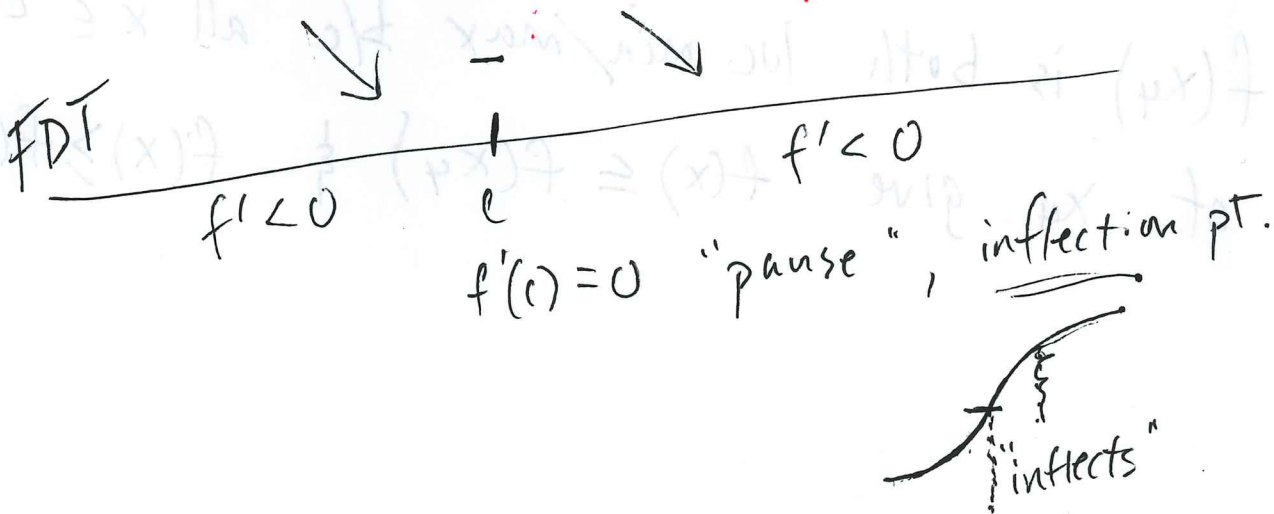 FDT
f' < 0
c
f' < 0
f'(c) = 0 "pause", inflection pt.
"inflects"